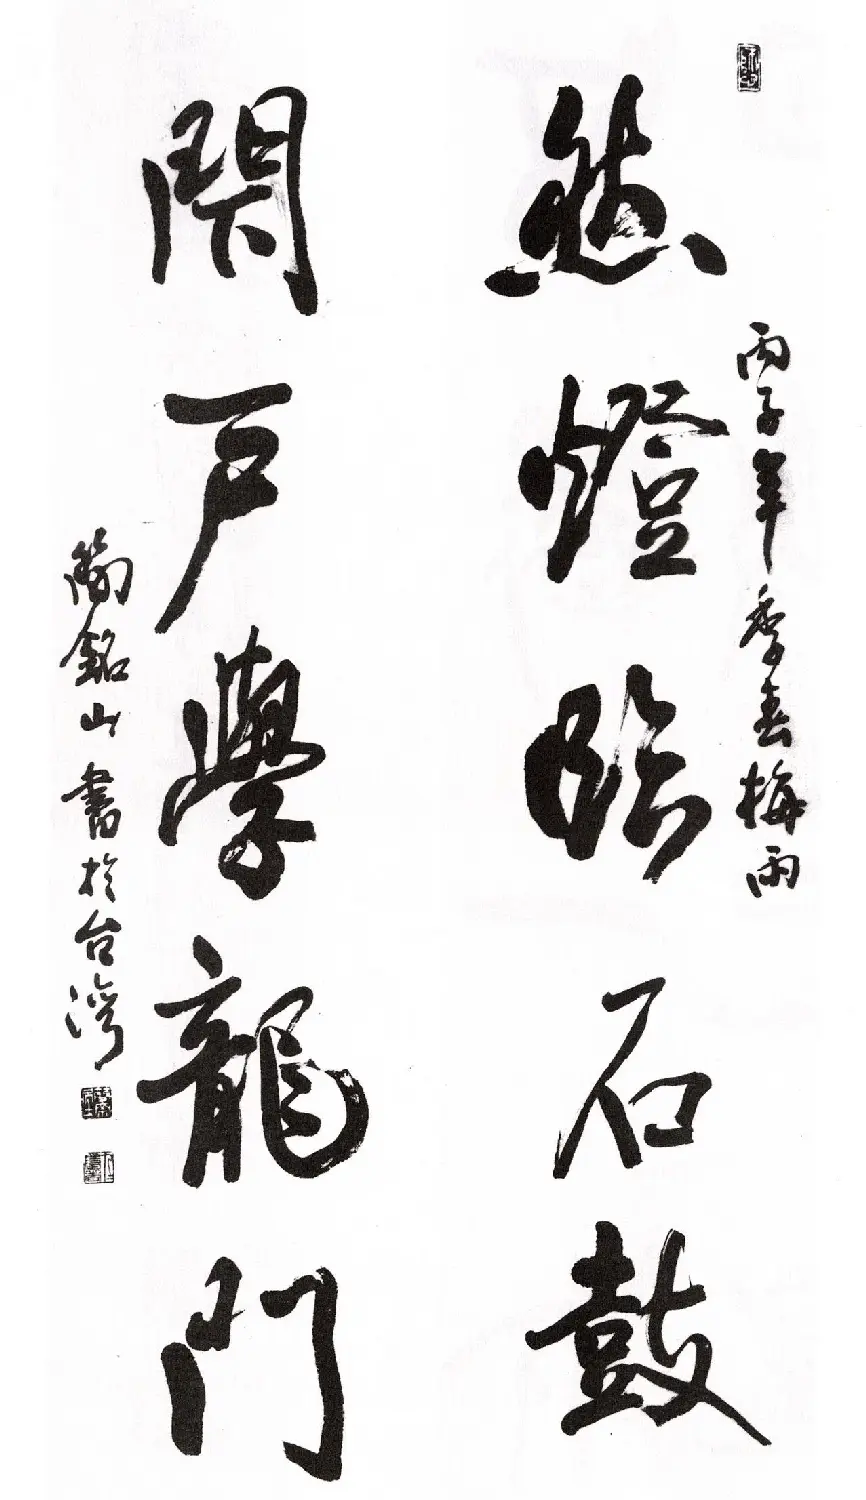 丙子年季春梅雨
然燈臨石鼓
閇戶學龍門
簡銘山書於台灣